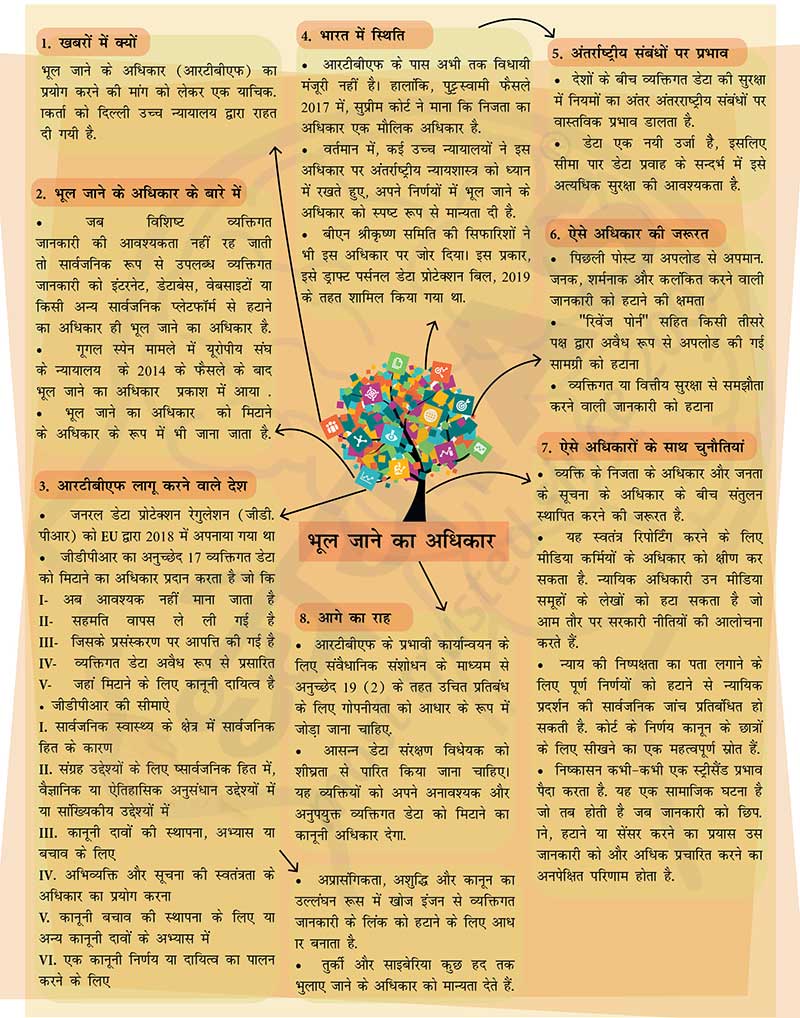 1. खबरों में क्यों
भूल जाने के अधिकार (आरटीबीएफ) का
प्रयोग करने की मांग को लेकर एक याचिक.
ाकर्ता को दिल्ली उच्च न्यायालय द्वारा राहत
दी गयी है.
2. भूल जाने के अधिकार के बारे में
• जब विशिष्ट व्यक्तिगत
जानकारी की आवश्यकता नहीं रह जाती
तो सार्वजनिक रूप से उपलब्ध व्यक्तिगत
जानकारी को इंटरनेट, डेटाबेस, वेबसाइटों या
किसी अन्य सार्वजनिक प्लेटफॉर्म से हटाने
का अधिकार ही भूल जाने का अधिकार है.
• गूगल स्पेन मामले में यूरोपीय संघ
के न्यायालय के 2014 के फैसले के बाद
भूल जाने का अधिकार प्रकाश में आया .
• भूल जाने का अधिकार को मिटाने
के अधिकार के रूप में भी जाना जाता है.
3. आरटीबीएफ लागू करने वाले देश
• जनरल डेटा प्रोटेक्शन रेगुलेशन (जीडी.
पीआर) को EU द्वारा 2018 में अपनाया गया था
• जीडीपीआर का अनुच्छेद 17 व्यक्तिगत डेटा
को मिटाने का अधिकार प्रदान करता है जो कि
I- अब आवश्यक नहीं माना जाता है
II- सहमति वापस ले ली गई है
III- जिसके प्रसंस्करण पर आपत्ति की गई है
IV- व्यक्तिगत डेटा अवैध रूप से प्रसारित
V- जहां मिटाने के लिए कानूनी दायित्व है
• जीडीपीआर की सीमाऐ
I. सार्वजनिक स्वास्थ्य के क्षेत्र में सार्वजनिक
हित के कारण
II. संग्रह उद्देश्यों के लिए ष्सार्वजनिक हित में,
वैज्ञानिक या ऐतिहासिक अनुसंधान उद्देश्यों में
या सांख्यिकीय उद्देश्यों में
III. कानूनी दावों की स्थापना, अभ्यास या
बचाव के लिए
IV. अभिव्यक्ति और सूचना की स्वतंत्रता के
अधिकार का प्रयोग करना
V. कानूनी बचाव की स्थापना के लिए या
अन्य कानूनी दावों के अभ्यास में
VI. एक कानूनी निर्णय या दायित्व का पालन
करने के लिए
• अप्रासंगिकता, अशुद्धि और कानून का
उल्लंघन रूस में खोज इंजन से व्यक्तिगत
जानकारी के लिंक को हटाने के लिए आध
ार बनाता है.
• तुर्की और साइबेरिया कुछ हद तक
भुलाए जाने के अधिकार को मान्यता देते हैं.
4. भारत में स्थिति
• आरटीबीएफ के पास अभी तक विधायी
मंजूरी नहीं है। हालांकि, पुट्टस्वामी फैसले
2017 में, सुप्रीम कोर्ट ने माना कि निजता का
अधिकार एक मौलिक अधिकार है.
• वर्तमान में, कई उच्च न्यायालयों ने इस
अधिकार पर अंतर्राष्ट्रीय न्यायशास्त्र को ध्यान
में रखते हुए, अपने निर्णयों में भूल जाने के
अधिकार को स्पष्ट रूप से मान्यता दी है.
• बीएन श्रीकृष्ण समिति की सिफारिशों ने
भी इस अधिकार पर जोर दिया। इस प्रकार,
इसे ड्राफ्ट पर्सनल डेटा प्रोटेक्शन बिल, 2019
के तहत शामिल किया गया था.
5. अंतर्राष्ट्रीय संबंधों पर प्रभाव
• देशों के बीच व्यक्तिगत डेटा की सुरक्षा
में नियमों का अंतर अंतरराष्ट्रीय संबंधों पर
वास्तविक प्रभाव डालता है.
• डेटा एक नयी उर्जा है, इसलिए
सीमा पार डेटा प्रवाह के सन्दर्भ में इसे
अत्यधिक सुरक्षा की आवश्यकता है.
6. ऐसे अधिकार की जरूरत
• पिछली पोस्ट या अपलोड से अपमान.
जनक, शर्मनाक और कलंकित करने वाली
जानकारी को हटाने की क्षमता
• "रिवेंज पोर्न" सहित किसी तीसरे
पक्ष द्वारा अवैध रूप से अपलोड की गई
सामग्री को हटाना
• व्यक्तिगत या वित्तीय सुरक्षा से समझौता
करने वाली जानकारी को हटाना
7. ऐसे अधिकारों के साथ चुनौतियां
• व्यक्ति के निजता के अधिकार और जनता
के सूचना के अधिकार के बीच संतुलन
स्थापित करने की जरूरत है.
• यह स्वतंत्र रिपोर्टिंग करने के लिए
मीडिया कर्मियों के अधिकार को क्षीण कर
सकता है. न्यायिक अधिकारी उन मीडिया
समूहों के लेखों को हटा सकता है जो
आम तौर पर सरकारी नीतियों की आलोचना
करते हैं.
• न्याय की निष्पक्षता का पता लगाने के
लिए पूर्ण निर्णयों को हटाने से न्यायिक
प्रदर्शन की सार्वजनिक जांच प्रतिबंधित हो
सकती है. कोर्ट के निर्णय कानून के छात्रों
के लिए सीखने का एक महत्वपूर्ण स्रोत हैं.
• निष्कासन कभी-कभी एक स्ट्रीसैंड प्रभाव
पैदा करता है. यह एक सामाजिक घटना है
जो तब होती है जब जानकारी को छिप.
ाने, हटाने या सेंसर करने का प्रयास उस
जानकारी को और अधिक प्रचारित करने का
अनपेक्षित परिणाम होता है.
भूल जाने का अधिकार
8. आगे का राह
• आरटीबीएफ के प्रभावी कार्यान्वयन के
लिए संवैधानिक संशोधन के माध्यम से
अनुच्छेद 19 (2) के तहत उचित प्रतिबंध
के लिए गोपनीयता को आधार के रूप में
जोड़ा जाना चाहिए.
• आसन्न डेटा संरक्षण विधेयक को
शीघ्रता से पारित किया जाना चाहिए।
यह व्यक्तियों को अपने अनावश्यक और
अनुपयुक्त व्यक्तिगत डेटा को मिटाने का
कानूनी अधिकार देगा.